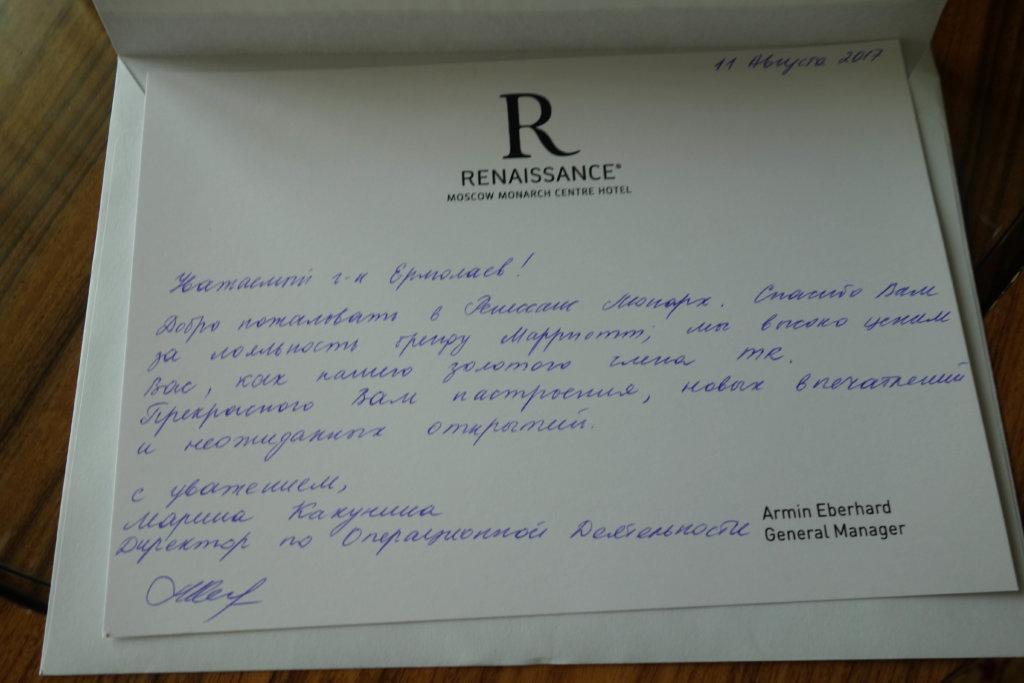 11 Августа 2017
R
RENAISSANCE®
MOSCOW MONARCH CENTRE HOTEL
Уважаемый г-н Ермолаев!
Добро пожаловать в Ренессанс Монарх. Спасибо Вам
за лояльность бренду Марриотт; мы высоко ценим
Вас, как нашего золотого члена
Прекрасного Вам настроения, новых впечатлений
и неожиданных открытий.
С уважением,
Марина
Директор по Операционной Деятельности
Armin Eberhard
General Manager